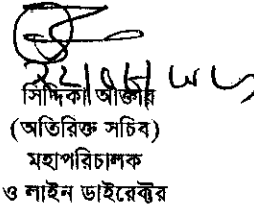 সিদ্দিকা আক্তার
(অতিরিক্ত সচিব)
মহাপরিচালক
ও লাইন ডাইরেক্টর